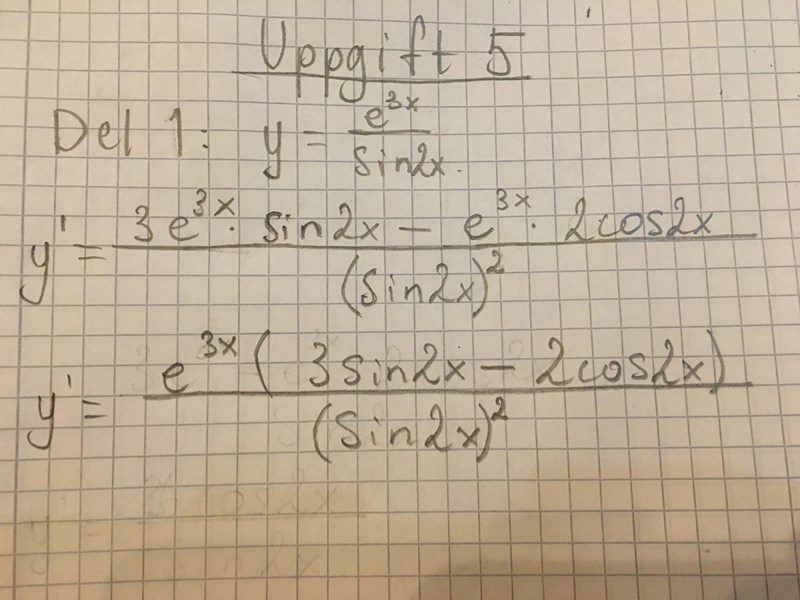 Uppgift 5
Del 1: y = e^3x / sin2x.
y' = 3e^3x · sin2x − e^3x · 2cos2x / (sin2x)^2
y' = e^3x ( 3sin2x − 2cos2x) / (sin2x)^2